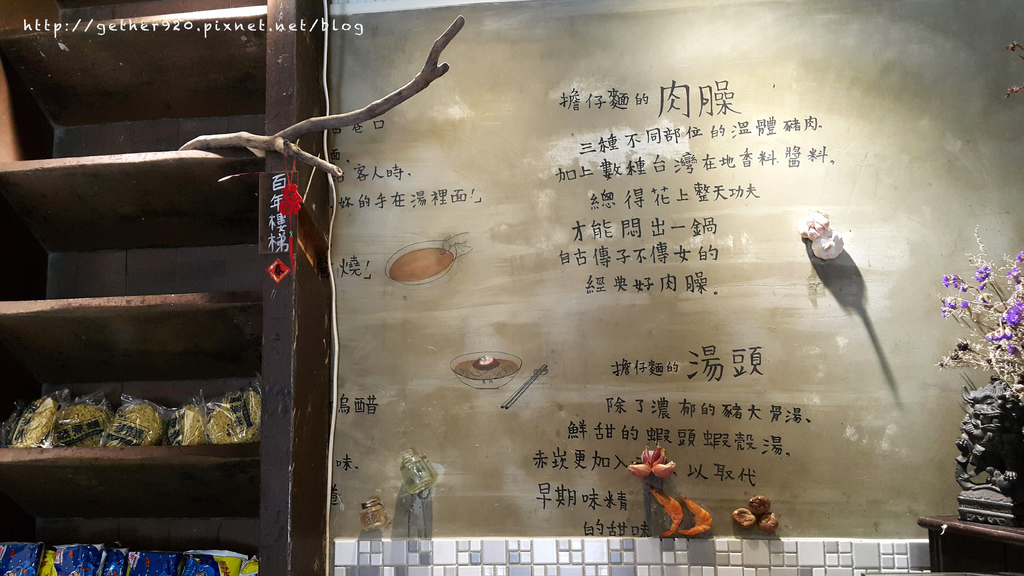 http://gether920.pixnet.net/blog
百年樓梯
巷口
麵、
客人時、
妳的手在湯裡面!」
燒!」
烏醋
味、
擔仔麵的 肉臊
三種不同部位的溫體豬肉、
加上數種台灣在地香料醬料,
總得花上整天功夫
才能悶出一鍋
自古傳子不傳女的
經典好肉臊。
擔仔麵的 湯頭
除了濃郁的豬大骨湯、
鮮甜的蝦頭蝦殼湯,
赤崁更加入 以取代
早期味精
的甜味